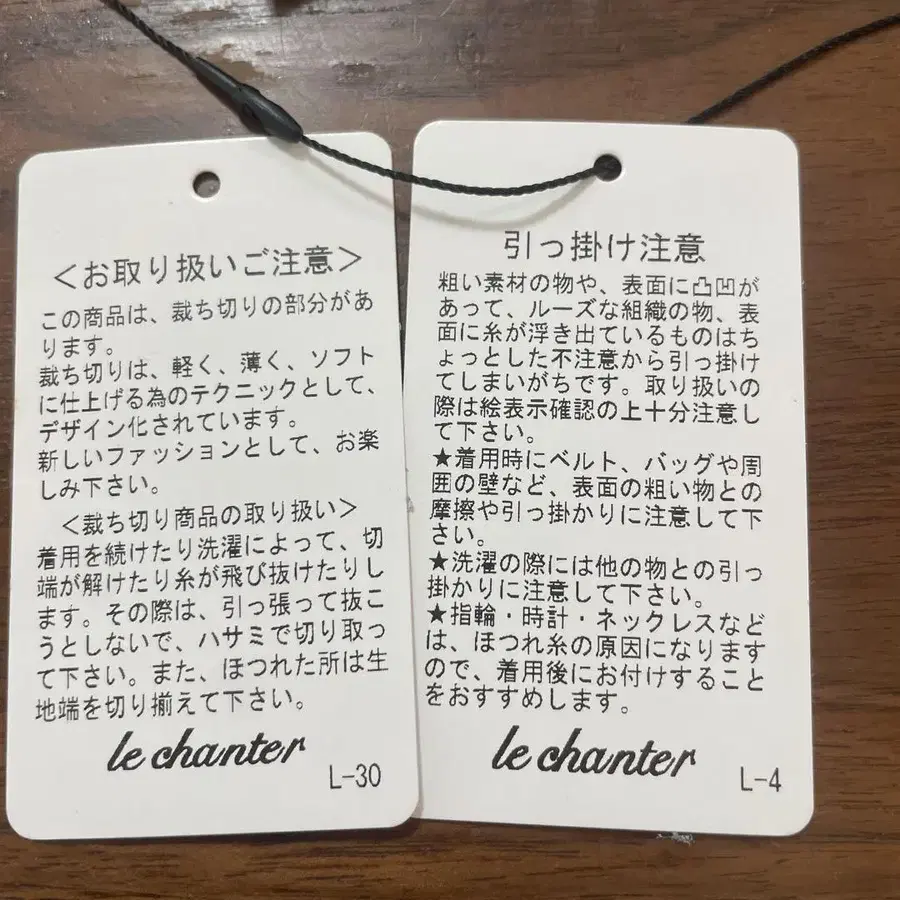 ＜お取り扱いご注意＞
この商品は、裁ち切りの部分があ
ります。
裁ち切りは、軽く、薄く、ソフト
に仕上げる為のテクニックとして、
デザイン化されています。
新しいファッションとして、お楽
しみ下さい。
＜裁ち切り商品の取り扱い＞
着用を続けたり洗濯によって、切
端が解けたり糸が飛び抜けたりし
ます。その際は、引っ張って抜こ
うとしないで、ハサミで切り取っ
て下さい。また、ほつれた所は生
地端を切り揃えて下さい。
le chanter
L-30
引っ掛け注意
粗い素材の物や、表面に凸凹が
あって、ルーズな組織の物、表
面に糸が浮き出ているものはち
ょっとした不注意から引っ掛け
てしまいがちです。取り扱いの
際は絵表示確認の上十分注意し
て下さい。
★着用時にベルト、バッグや周
囲の壁など、表面の粗い物との
摩擦や引っ掛かりに注意して下
さい。
★洗濯の際には他の物との引っ
掛かりに注意して下さい。
★指輪・時計・ネックレスなど
は、ほつれ糸の原因になります
ので、着用後にお付けすること
をおすすめします。
le chanter
L-4